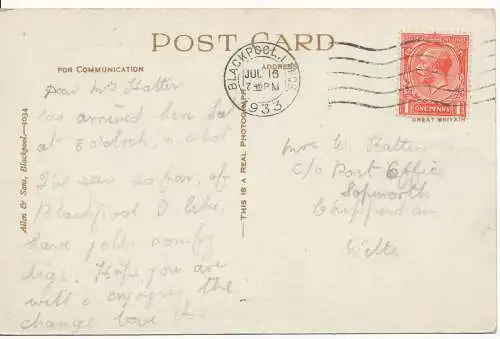 POST CARD
FOR COMMUNICATION
ADDRESS
BLACKPOOL
JUL 16
7- PM
1933
ONE PENNY
GREAT BRITAIN
Dear Mrs Hatter
we arrived here Sat
at 8 o'clock, & what
I've seen so far, of
Blackpool I like,
have jolly comfy
digs. Hope you are
well & enjoying the
change love
Mrs W. Hatter
c/o Post Office
Sopworth
Chippenham
Wilts
THIS IS A REAL PHOTOGRAPH
Allen & Sons, Blackpool—1034